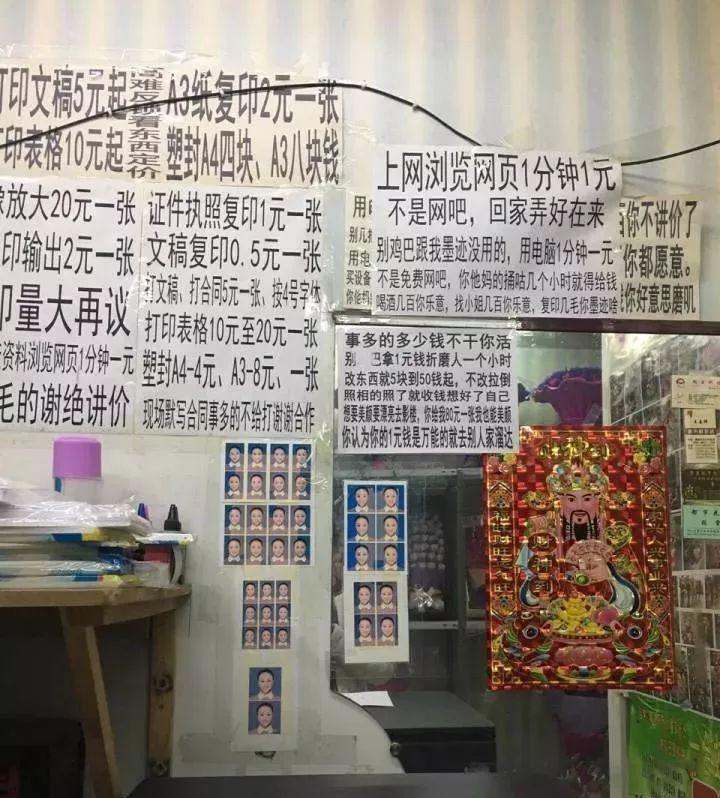 打印文稿5元起
印表格10元起
看东西定价
A3纸复印2元一张
塑封A4四块、A3八块钱
放大20元一张
印输出2元一张
印量大再议
资料浏览网页1分钟一元
毛的谢绝讲价
证件执照复印1元一张
文稿复印0.5元一张
打文稿、打合同5元一张、按4号字体
打印表格10元至20元一张
塑封A4-4元、A3-8元、一张
现场默写合同事多的不给打谢谢合作
用
别几
用电
买设备
你他妈
上网浏览网页1分钟1元
不是网吧，回家弄好在来
别鸡巴跟我墨迹没用的，用电脑1分钟一元
不是免费网吧，你他妈的捅咕几个小时就得给钱
喝酒几百你乐意，找小姐几百你乐意，复印几毛你墨迹啥
你不讲价了
你都愿意。
你好意思磨叽
事多的多少钱不干你活
别 巴拿1元钱折磨人一个小时
改东西就5块到50钱起，不改拉倒
照相的照了就收钱想好了自己
想要美颜要漂亮去影楼，你给我80元一张我也能美颜
你认为你的1元钱是万能的就去别人家溜达